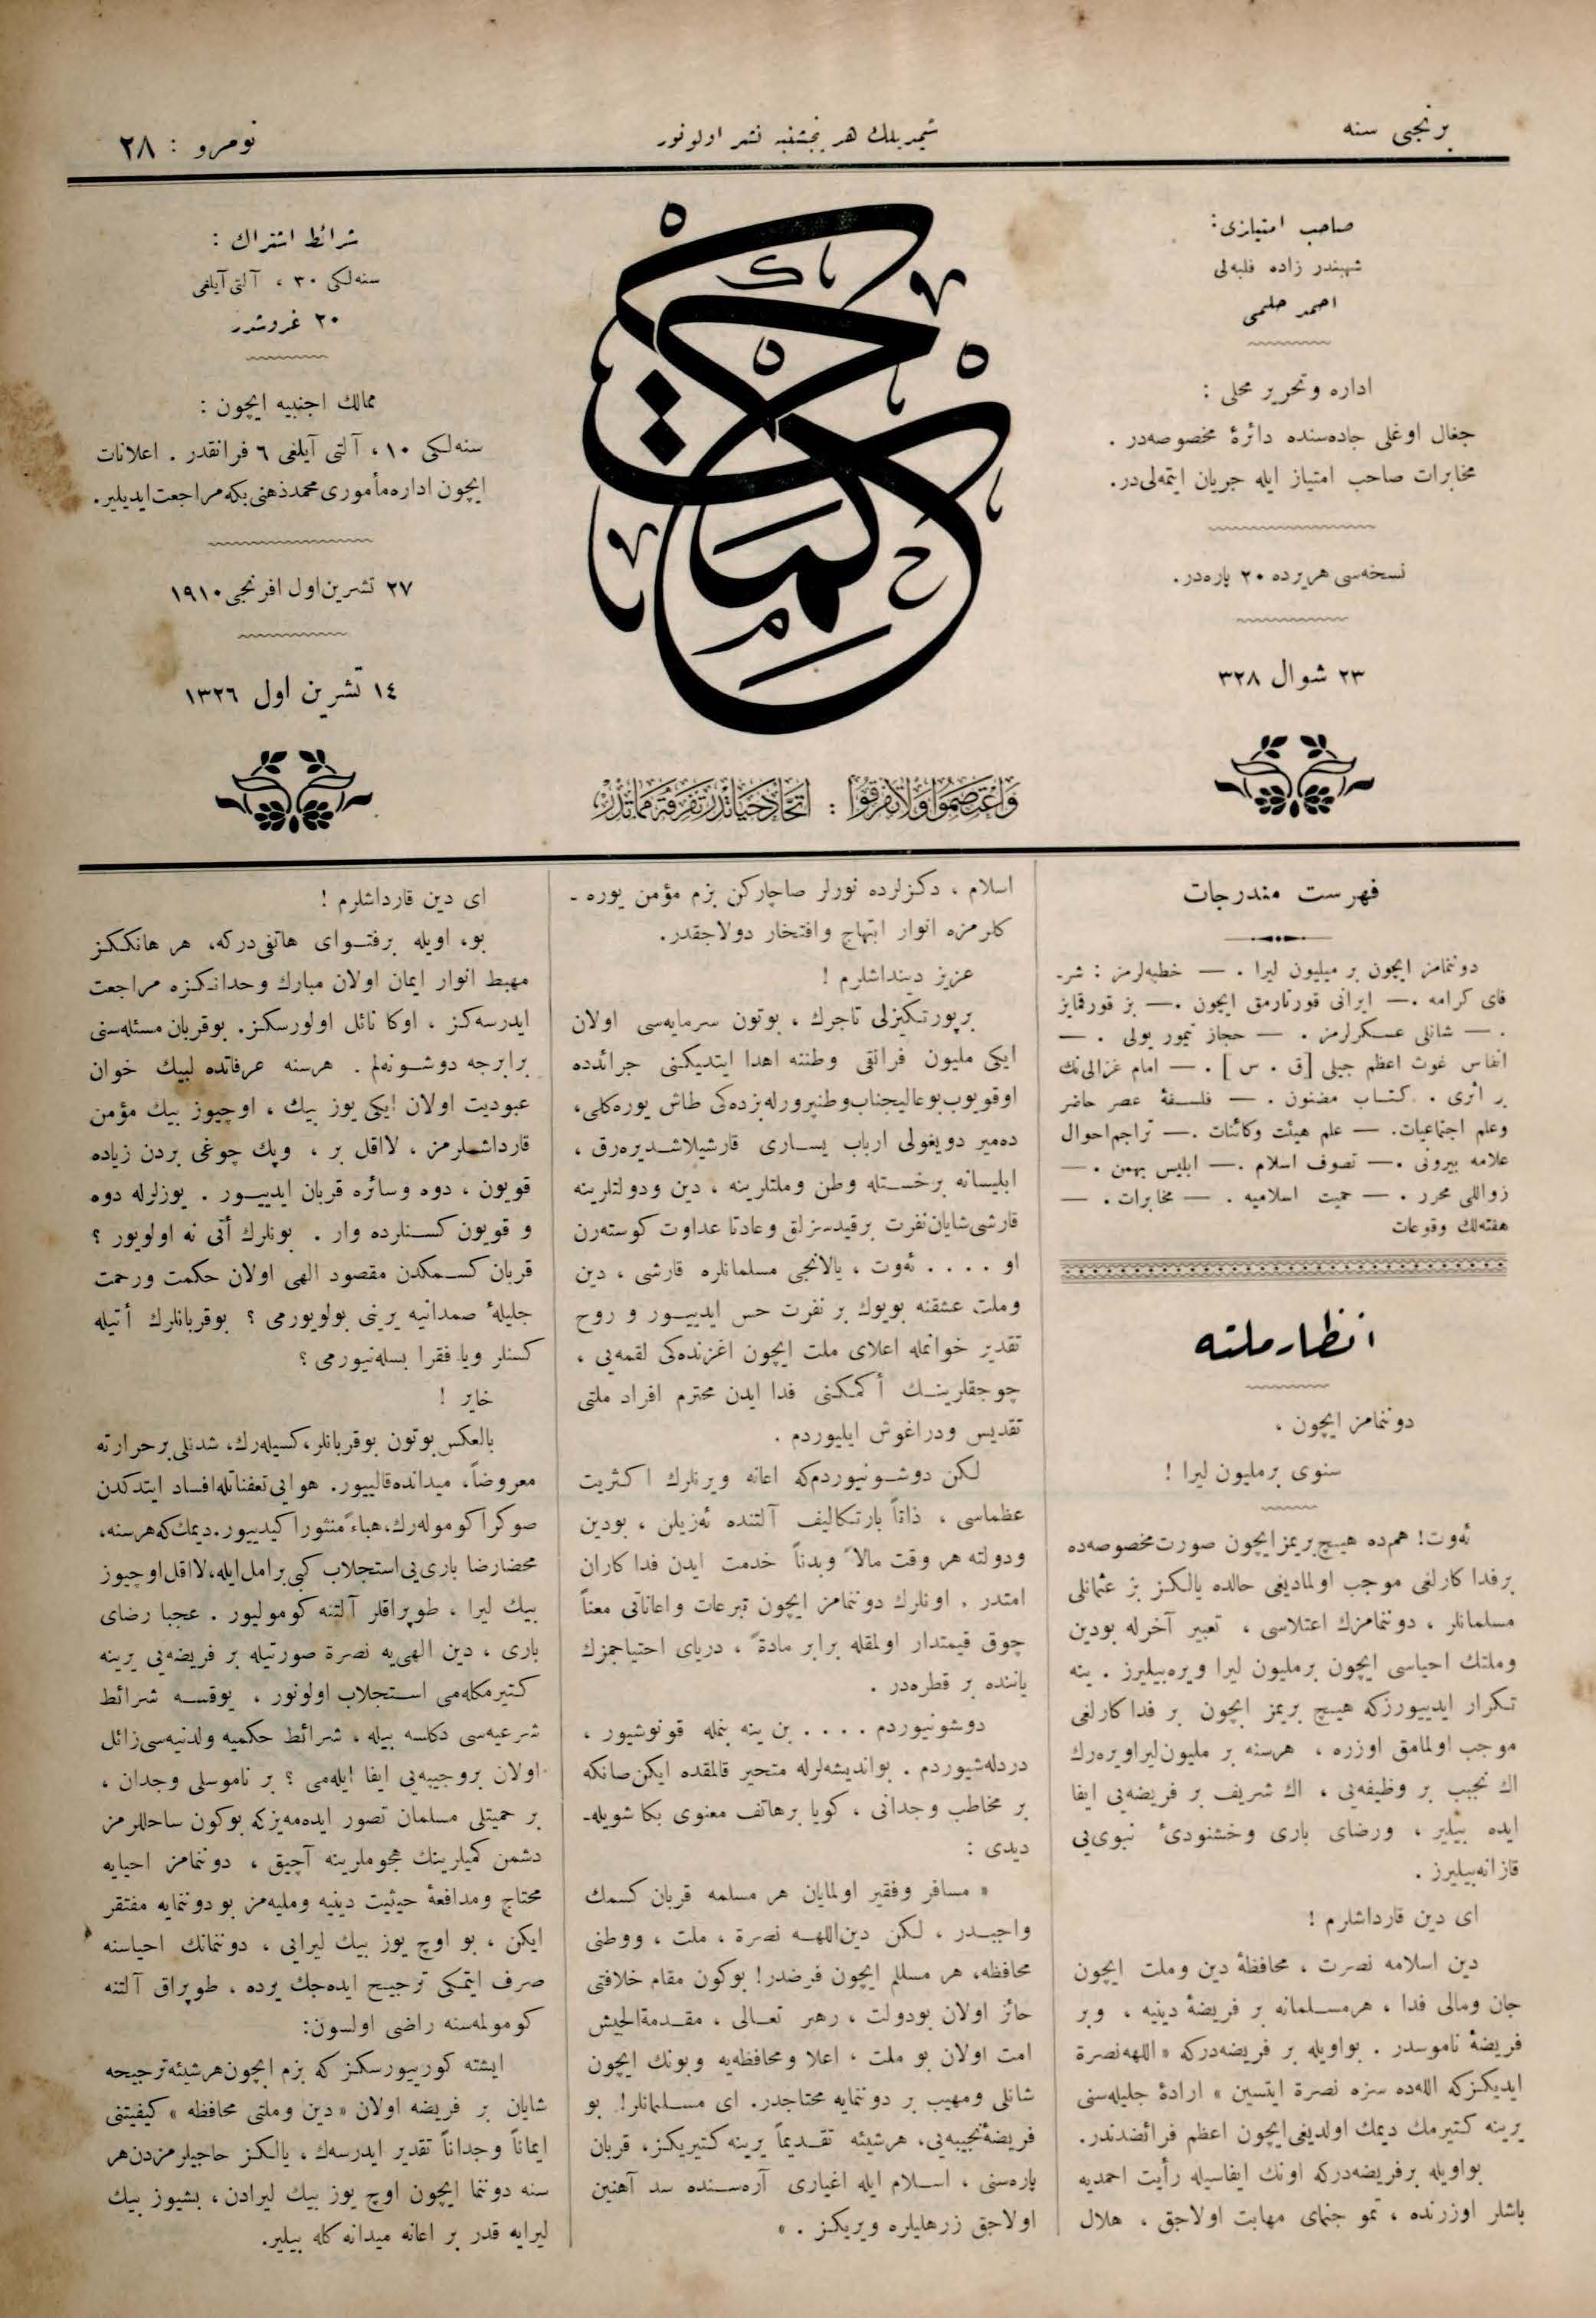 برنجی سنه
شیمدیلك هر پنجشنبه نشر اولونور
نومرو : ٢٨
صاحب امتیازی:
شهبندر زاده فلبه‌لی
احمد حلمی
اداره وتحریر محلی :
جغال اوغلی جاده‌سنده دائرۀ مخصوصه‌در .
مخابرات صاحب امتیاز ایله جریان ایتمه‌لی‌در.
نسخه‌سی هریرده ٢٠ پاره‌در.
٢٣ شوال ٣٢٨
حكمت
وَاعْتَصِمُوا وَلَا تَفَرَّقُوا : اتحاد حیاتدر تفرقه مماتدر
شرائط اشتراك :
سنه‌لكی ٣٠ ، آلتی آیلغی
٢٠ غروشدر
ممالك اجنبیه ایچون :
سنه‌لكی ١٠ ، آلتی آیلغی ٦ فرانقدر . اعلانات
ایچون اداره مأموری محمد ذهنی بكه مراجعت ایدیلیر.
٢٧ تشرین اول افرنجی ١٩١٠
١٤ تشرین اول ١٣٢٦
فهرست مندرجات
دونمامز ایچون بر میلیون لیرا . — خطبه‌لرمز : شر-
فای كرامه .— ایرانی قورتارمق ایچون .— بز قورقمایز
. — شانلی عسكرلرمز . — حجاز تیمور یولی . —
انفاس غوث اعظم جیلی [ق . س] . — امام غزالی‌نك
بر اثری . كتاب مضنون . — فلسفۀ عصر حاضر
وعلم اجتماعیات. — علم هیئت وكائنات .— تراجم احوال
علامه بیرونی .— تصوف اسلام .— ابلیس بهمن . —
زواللی محرر . — حمیت اسلامیه . — مخابرات . —
هفته‌لك وقوعات
انظار ملته
دونمامز ایچون ،
سنوی برملیون لیرا !
ئه‌وت! هم‌ده هیچ بریمز ایچون صورت مخصوصه‌ده
برفدا كارلغی موجب اولمادیغی حالده یالكز بز عثمانلی
مسلمانلر ، دونمامزك اعتلاسی ، تعبیر آخرله بودین
وملتك احیاسی ایچون برملیون لیرا ویره‌بیلیرز . ینه
تكرار ایدییورزكه هیچ بریمز ایچون بر فدا كارلغی
موجب اولمامق اوزره ، هرسنه بر ملیون لیرا ویره‌رك
اك نجیب بر وظیفه‌یی ، اك شریف بر فریضه‌یی ایفا
ایده بیلیر ، ورضای باری وخشنودئ نبوی‌یی
قازانه‌بیلیرز .
ای دین قارداشلرم !
دین اسلامه نصرت ، محافظۀ دین وملت ایچون
جان ومالی فدا ، هرمسلمانه بر فریضۀ دینیه ، وبر
فریضۀ ناموسدر . بواویله بر فریضه‌دركه «اللهه نصرة
ایدیكزكه الله‌ده سزه نصرة ایتسین» ارادۀ جلیله‌سنی
یرینه كتیرمك دیمك اولدیغی ایچون اعظم فرائضدندر.
بواویله برفریضه‌دركه اونك ایفاسیله رأیت احمدیه
باشلر اوزرنده ، تموجنمای مهابت اولاجق ، هلال
اسلام ، دكزلرده نورلر صاچاركن بزم مؤمن یوره -
كلرمزه انوار ابتهاج وافتخار دولاجقدر.
عزیز دینداشلرم !
برپورتكیزلی تاجرك ، بوتون سرمایه‌سی اولان
ایكی ملیون فرانقی وطننه اهدا ایتدیكنی جرائدده
اوقویوب بوعالیجناب وطنپرورله بزده‌كی طاش یوره‌كلی،
ده‌میر دویغولی ارباب یساری قارشیلاشدیره‌رق ،
ابلیسانه برخستله وطن وملتلرینه ، دین ودولتلرینه
قارشی شایان نفرت برقیدسزلق وعادتا عداوت كوسته‌رن
او . . . . ئه‌وت ، یالانجی مسلمانلره قارشی ، دین
وملت عشقنه بویوك بر نفرت حس ایدییور و روح
تقدیر خوانمله اعلای ملت ایچون اغزنده‌كی لقمه‌یی ،
چوجقلرینك أكمكنی فدا ایدن محترم افراد ملتی
تقدیس ودراغوش ایلیوردم .
لكن دوشونیوردم‌كه اعانه ویرنلرك اكثریت
عظماسی ، ذاتاً بارتكالیف آلتنده ئه‌زیلن ، بودین
ودولته هر وقت مالاً وبدناً خدمت ایدن فداكاران
امتدر . اونلرك دونمامز ایچون تبرعات واعاناتی معناً
چوق قیمتدار اولمقله برابر مادةً ، دریای احتیاجمزك
یاننده بر قطره‌در .
دوشونیوردم . . . . بن ینه بنمله قونوشیور ،
دردله‌شیوردم . بواندیشه‌لرله متحیر قالمقده ایكن صانكه
بر مخاطب وجدانی ، كویا برهاتف معنوی بكا شویله-
دیدی :
« مسافر وفقیر اولمایان هر مسلمه قربان كسمك
واجبدر ، لكن دین‌اللهه نصرة ، ملت ، ووطنی
محافظه، هر مسللم ایچون فرضدر! بوكون مقام خلافتی
حائز اولان بودولت ، رهبر تعالی ، مقدمةالجیش
امت اولان بو ملت ، اعلا ومحافظه‌یه وبونك ایچون
شانلی ومهیب بر دونمایه محتاجدر. ای مسلمانلر! بو
فریضۀ نجیبه‌یی، هرشیئه تقدیماً یرینه كتیریكز، قربان
پاره‌سنی ، اسلام ایله اغیاری آره‌سنده سد آهنین
اولاجق زرهلیلره ویریكز . »
ای دین قارداشلرم !
بو، اویله برفتوای هاتفی‌دركه، هر هانككز
مهبط انوار ایمان اولان مبارك وحدانكزه مراجعت
ایدرسه‌كز ، اوكا نائل اولورسكز. بوقربان مسئله‌سنی
برابرجه دوشونه‌لم . هرسنه عرفاتده لبیك خوان
عبودیت اولان ایكی یوز بیك ، اوچیوز بیك مؤمن
قارداشلرمز ، لااقل بر ، وپك چوغی بردن زیاده
قویون ، دوه وسائره قربان ایدییور . یوزلرله دوه
و قویون كسنلرده وار . بونلرك أتی نه اولویور ؟
قربان كسمكدن مقصود الهی اولان حكمت ورحمت
جلیلۀ صمدانیه یرینی بولویورمی ؟ بوقربانلرك أتیله
كسنلر ویا فقرا بسله‌نیورمی ؟
خایر !
بالعكس بوتون بوقربانلر، كسیله‌رك، شدتلی برحرارته
معروضاً، میدانده قالییور. هوایی تعفناتله افساد ایتدكدن
صوكرا كوموله‌رك، هباءً منثورا كیدییور. دیمك‌كه هرسنه،
محضا رضا باری‌یی استجلاب كبی بر امل ایله، لااقل اوچیوز
بیك لیرا ، طوپراقلر آلتنه كومولیور . عجبا رضای
باری ، دین الهی‌یه نصرة صورتیله بر فریضه‌یی یرینه
كتیرمكله‌می استجلاب اولونور ، یوقسه شرائط
شرعیه‌سی دكلسه بیله ، شرائط حكمیه ولدنیه‌سی زائل
اولان بروجیبه‌یی ایفا ایله‌می ؟ بر ناموسلی وجدان ،
بر حمیتلی مسلمان تصور ایده‌مه‌یزكه بوكون ساحللرمز
دشمن كمیلرینك هجوملرینه آچیق ، دونمامز احیایه
محتاج ومدافعۀ حیثیت دینیه وملیه‌مز بو دونمایه مفتقر
ایكن ، بو اوچ یوز بیك لیرایی ، دونمانك احیاسنه
صرف ایتمكی ترجیح ایده‌جك یرده ، طوپراق آلتنه
كومولمه‌سنه راضی اولسون:
ایشته كورییورسكز كه بزم ایچون هرشیئه ترجیحه
شایان بر فریضه اولان «دین وملتی محافظه» كیفیتنی
ایماناً وجداناً تقدیر ایدرسه‌ك ، یالكز حاجیلرمزدن هر
سنه دونما ایچون اوچ یوز بیك لیرادن ، بشیوز بیك
لیرایه قدر بر اعانه میدانه كله بیلیر.